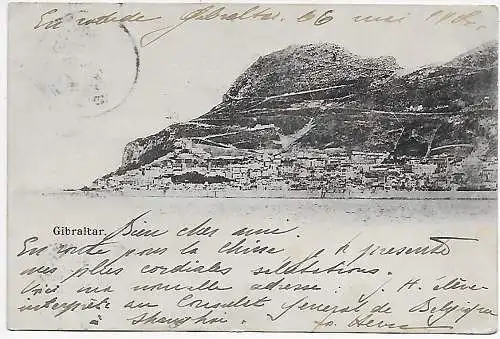 En rade de Gibraltar. 06 mai
Gibraltar.
Bien cher ami.
En route pour la Chine je présente
mes plus cordiales salutations.
Voici ma nouvelle adresse : J. H. élève
interprète au Consulat Général de Belgique
à Shanghai.